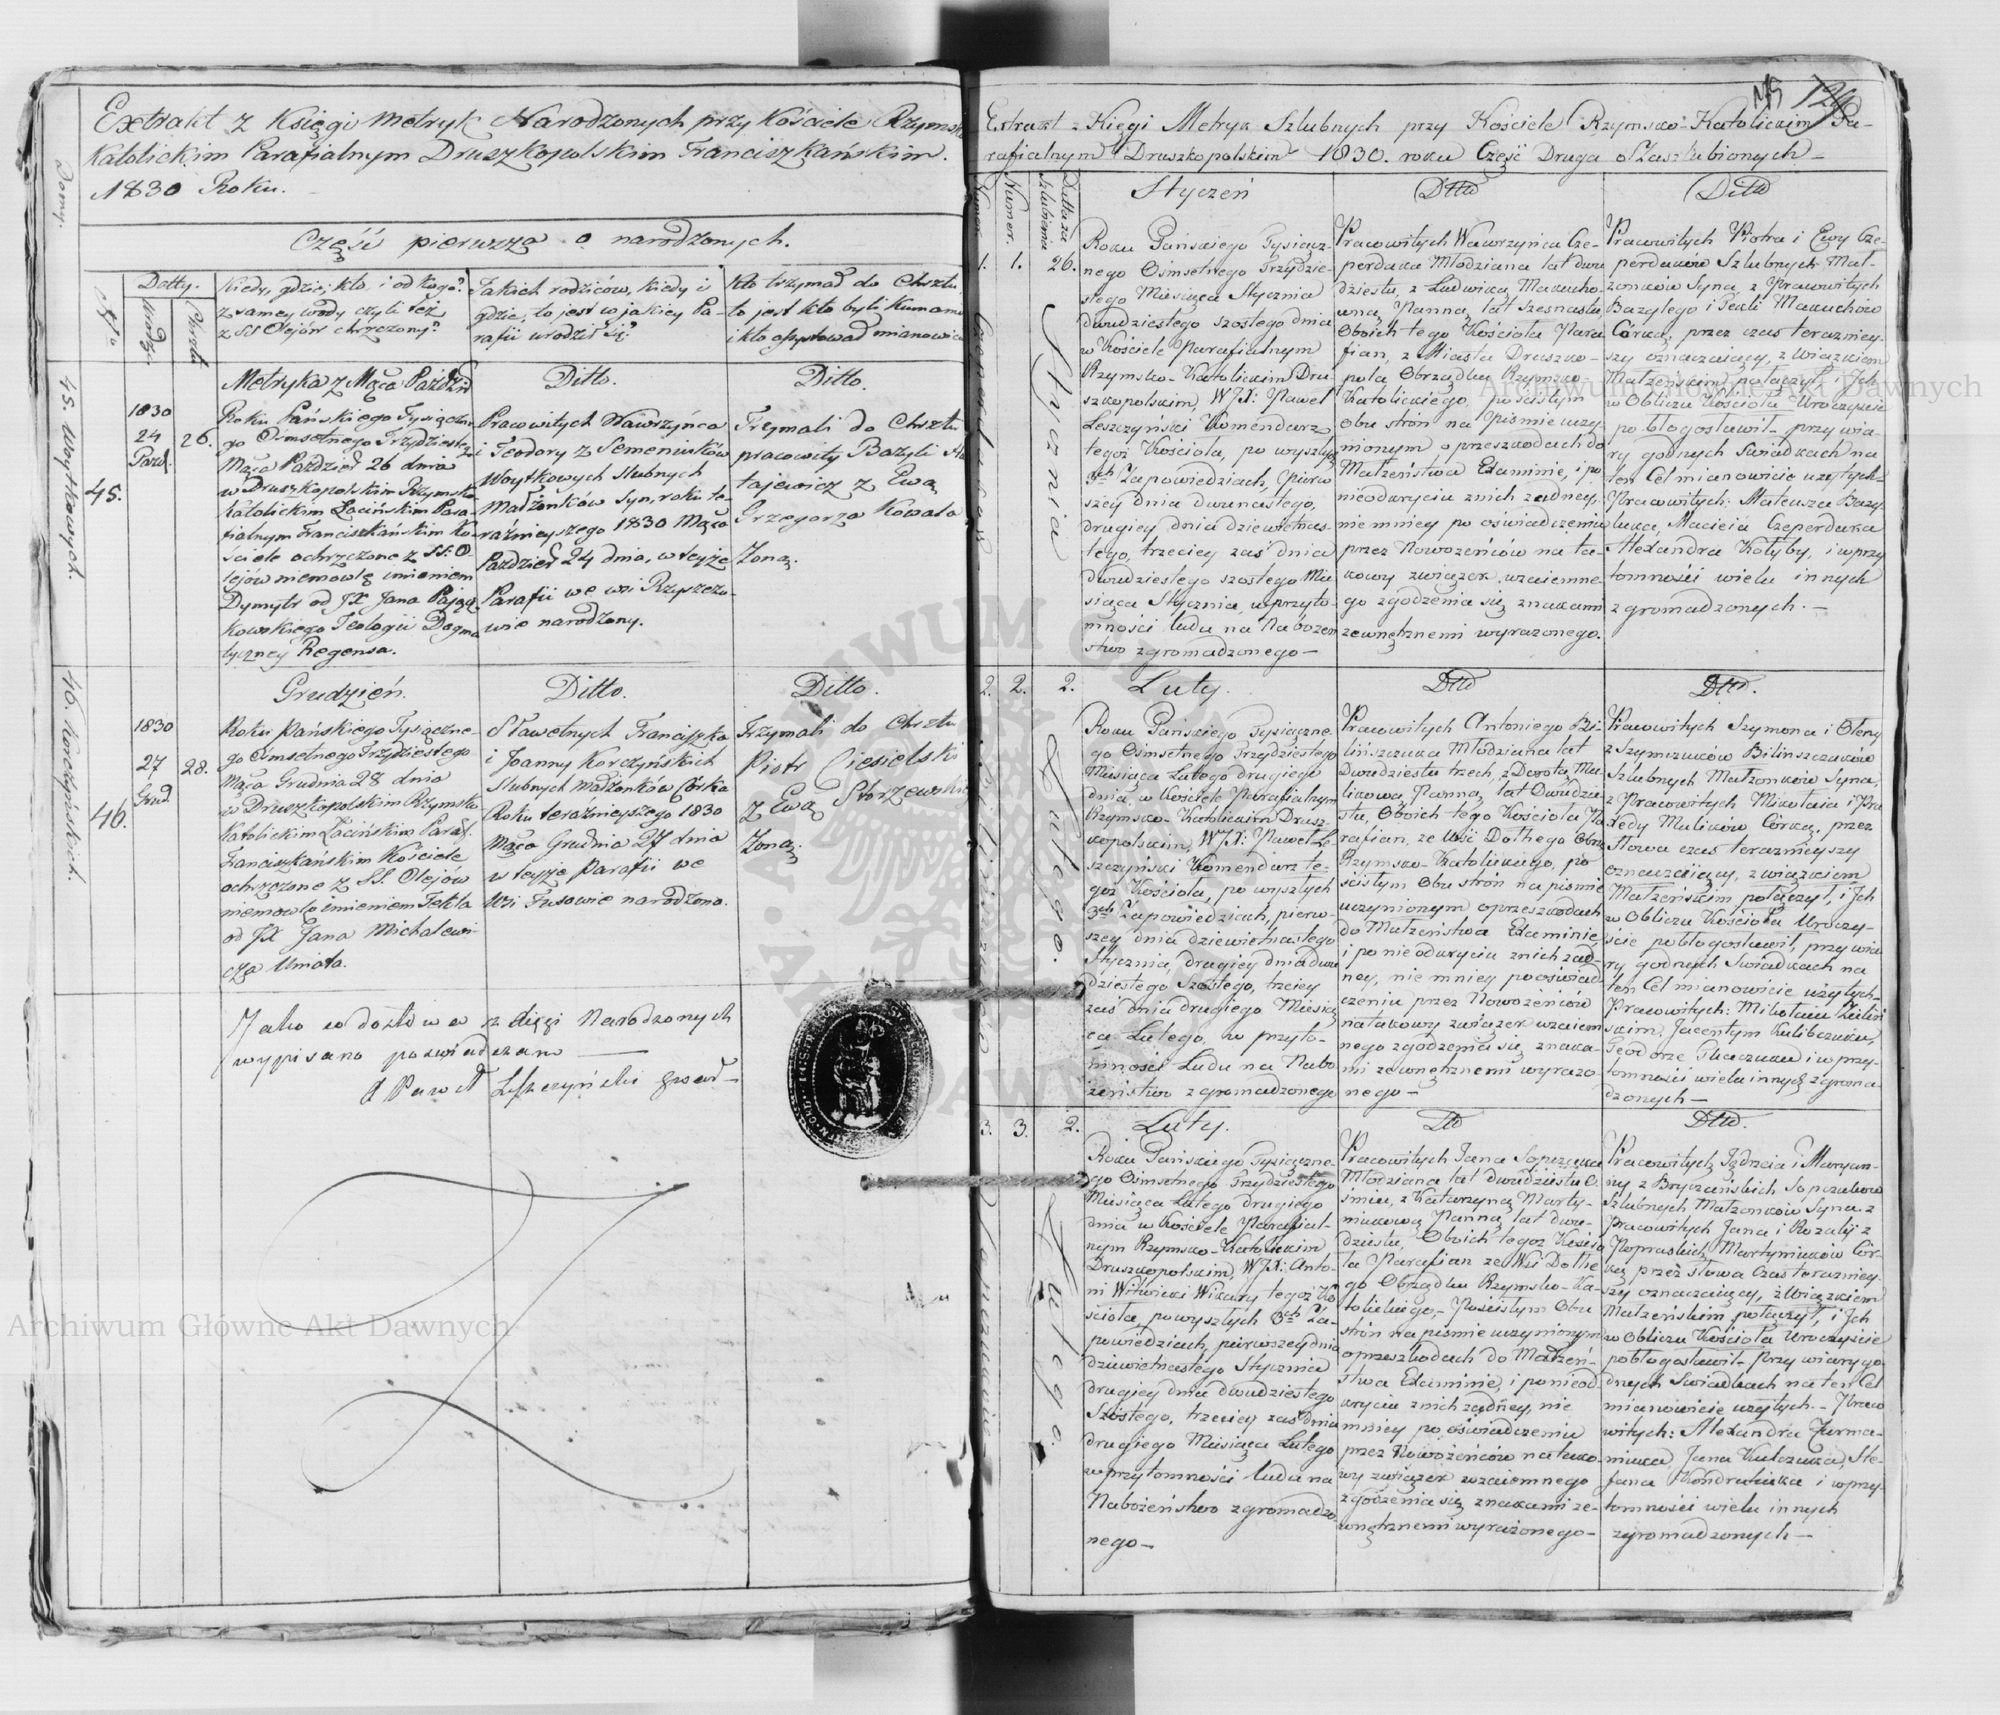 Extrakt z Księgi Metryk Narodzonych przy Kościele Rzymsko
Katolickim Parafialnym Druszkopolskim Franciszkańskim.
1830 Roku.
Część pierwsza o narodzonych.
Domy.
Datty.
Kiedy, gdzie, kto i od kogo?
z samey wody czyli też
z SS Olejów chrzczony?
Jakich rodziców, kiedy i
gdzie, to jest w jakiey Pa-
rafii urodził się?
Kto trzymał do Chrztu
to jest kto byli Kumami
i kto assystował mianowicie
45. Woytkowych.
45.
1830
24
Pazd.
26.
Metryka z Mąca Paźdź
Roku Pańskiego Tysiączne
go Ośmsetnego Trzydziestego
Mąca Paździer 26 dnia
w Druszkopolskim Rzymsko
Katolickim Łacińskim Para-
fialnym Franciszkańskim Ko-
ściele ochrzczone z SS. O-
lejów niemowlę imieniem
Dymytr od JX Jana Pają
kowskiego Teologii Dogma
tyczney Regensa.
Ditto.
Pracowitych Wawrzyńca
i Teodory z Semeniuków
Woytkowych slubnych
Małżonków Syn, roku te-
raźnieyszego 1830 Mąca
Paździer 24 dnia, w teyże
Parafii we wsi Rzyszczo-
wie narodzony.
Ditto.
Trzymali do Chrztu
pracowity Bazyli
tajewicz z Ewą
Grzegorza Kowala
Żoną.
46. Korczyńskich.
46.
1830
27
Grud.
28.
Grudzień.
Roku Pańskiego Tysiączne-
go Ośmsetnego Trzydziestego
Mąca Grudnia 28 dnia
w Druszkopolskim Rzymsko
Katolickim Łacińskim Paraf.
Franciszkańskim Kościele
ochrzczone z SS. Olejów
niemowlę imieniem Tekla
od JX Jana Michalewi
cza Uniata.
Ditto.
Sławetnych Franciszka
i Joanny Korczyńskich
Slubnych małżonków Córka
Roku teraźnieyszego 1830
Mąca Grudnia 27 dnia
w teyże Parafii we
Wsi Fusowie narodzona.
Ditto.
Trzymali do Chrztu
Piotr Ciesielski
z Ewą
Żoną.
Jako co do słowa z xięgi Narodzonych
wypisano poświadczam
X Paweł Leszczyński
129
Extrakt z Xięgi Metryk Szlubnych przy Kościele Rzymsko-Katolickim Pa-
rafialnym Druszkopolskim 1830. roku Część Druga o Zaszlubionych
Numer.
Datta za
szlubienia
1.
1.
26.
Stycznia
Styczeń
Roku Pańskiego Tysiącz-
nego Ośmsetnego Trzydzie-
stego Miesiąca Stycznia
dwudziestego szostego dnia
w Kościele Parafialnym
Rzymsko-Katolickim Dru
szkopolskim, WJX: Paweł
Leszczyński Komendarz
tegoż Kościoła, po wyszłych
3ch Zapowiedziach, pierw
szey dnia dwunastego,
drugiey dnia dziewietnas-
tego, trzeciey zaś dnia
dwudziestego szostego Mie
siąca Stycznia, w przyto-
mności ludu na Nabożeń
stwo zgromadzonego
Ditto
Pracowitych Wawrzyńca Cze-
perdaka Młodziana lat dwu
dziestu, z Ludwiką Makucho
wną Panną lat szesnastu
Oboich tego Kościoła Para
fian, z Miasta Druszko-
pola Obrządku Rzymsko-
Katolickiego, po ścisłym
obu stron na piśmie uczy-
nionym o przeszkodach do
Małżeństwa Examinie, i po
nieodkryciu z nich żadney,
niemniey po oświadczeniu
przez Nowożeńców na ta-
kowy związek wzaiemne-
go zgodzenia się znakami
zewnętrznemi wyrażonego.
Ditto
Pracowitych Piotra i Ewy Cze-
perdaków Szlubnych Mał-
żonków Syna, z Pracowitych
Bazylego i Tekli Makuchów
Córką, przez czas teraźniey-
szy oznaczaiący, związkiem
Małżeńskim połączył, i Ich
w Obliczu Kościoła Uroczyście
pobłogosławił przy wia-
ry godnych Świadkach na
ten Cel mianowicie użytych
Pracowitych: Mateusza Bazy
luka, Macieia Czeperdaka
Alexandra Kołyby, i w przy
tomności wielu innych
zgromadzonych.
2.
2.
2.
Lutego.
Luty.
Roku Pańskiego Tysiączne
go Ośmsetnego Trzydziestego
Miesiąca Lutego drugiego
dnia, w Kościele Parafialnym
Rzymsko-Katolickim Drusz-
kopolskim, WJX: Paweł Le
szczyński Komendarz te-
goż Kościoła, po wyszłych
3ch Zapowiedziach, pierw-
szey dnia dziewietnastego
Stycznia, drugiey dnia dwu
dziestego Szostego, trzeciey
zaś dnia drugiego Miesią
ca Lutego, w przyto-
mności Ludu na Nabo
żeństwo zgromadzonego
Ditto
Pracowitych Antoniego Bi-
linszczuka Młodziana lat
Dwudziestu trzech, z Dorotą Mu
likową Panną lat Dwudzie
stu, Oboich tego Kościoła Pa
rafian, ze Wsi Dołhego Obrz
Rzymsko-Katolickiego, po
ścisłym Obu stron na piśmie
uczynionym o przeszkodach
do Małżeństwa Examinie,
i po nieodkryciu z nich żad-
ney, niemniey po oświad-
czeniu przez Nowożeńców
na takowy związek wzaiem
nego zgodzenia się znaka
mi zewnętrznemi wyrażo
nego
Ditto.
Pracowitych Szymona i Oleny
z Szymczuków Bilinszczuków
Szlubnych Małżonków Syna,
z Pracowitych Mikołaia i Pra
xedy Mulików Córką, przez
Słowa czas teraźnieyszy
oznaczaiący, związkiem
Małżeńskim połączył, i Ich
w Obliczu Kościoła Uroczy-
ście pobłogosławił, przy wia
ry godnych Świadkach na
ten Cel mianowicie użytych
Pracowitych: Mikołaiu
Jacentym Kulibczuku,
Teodorze Tkaczuku i w przy-
tomności wielu innych zgroma-
dzonych
3.
3.
2.
Lutego.
Luty.
Roku Pańskiego Tysiączne-
go Ośmsetnego Trzydziestego
Miesiąca Lutego drugiego
dnia w Kościele Parafial-
nym Rzymsko-Katolickim
Druszkopolskim, WJX: Anto-
ni Witwicki Wikary tegoż Ko
ścioła, po wyszłych 3ch Za-
powiedziach, pierwszey dnia
dziewietnastego Stycznia
drugiey dnia dwudziestego
Szostego, trzeciey zaś dnia
drugiego Miesiąca Lutego
w przytomności ludu na
Nabożeństwo zgromadzo-
nego
Ditto
Pracowitych Jana Sapeżuka
Młodziana lat dwudziestu O-
śmiu, z Katarzyną Marty-
niukową Panną lat dwu-
dziestu, Oboich tegoż Kościo
ła Parafian ze Wsi Dołhe
go Obrządku Rzymsko-Ka-
tolickiego, Po ścisłym Obu
stron na piśmie uczynionym
o przeszkodach do Małżeń-
stwa Examinie, i po nieod
kryciu z nich żadney, nie
mniey po oświadczeniu
przez Nowożeńców na tako-
wy związek wzaiemnego
zgodzenia się znakami ze-
wnętrznemi wyrażonego
Ditto.
Pracowitych Jędrzeia i Maryan-
ny z Bryczańskich Sapczuków
Szlubnych Małżonków Syna, z
Pracowitych Jana i Rozalij z
Martyniuków Cór-
ką, przez słowa Czas teraźniey-
szy oznaczaiący, związkiem
Małżeńskim połączył, i Ich
w Obliczu Kościoła Uroczyście
pobłogosławił przy wiary go
dnych Świadkach na ten Cel
mianowicie użytych. Praco
witych: Alexandra Furma-
niuka, Jana Kulczuka, Ste-
fana Kondratiuka i w przy-
tomności wielu innych
zgromadzonych
Archiwum Główne Akt Dawnych
Archiwum Główne Akt Dawnych